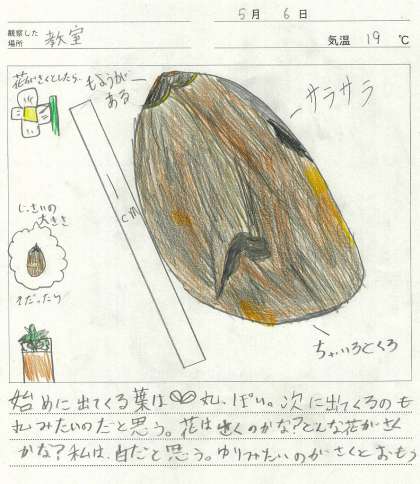 5月 6日
観察した場所 教室
気温 19 ℃
花がさくとしたら…
もようが
ある
サラサラ
1cm
じっさいの
大きさ
そだったら
ちゃいろとくろ
始めに出てくる葉は丸っぽい。次に出てくるのも
丸みたいのだと思う。花はさくのかな?どんな花がさく
かな?私は、白だと思う。ゆりみたいのがさくとおもう